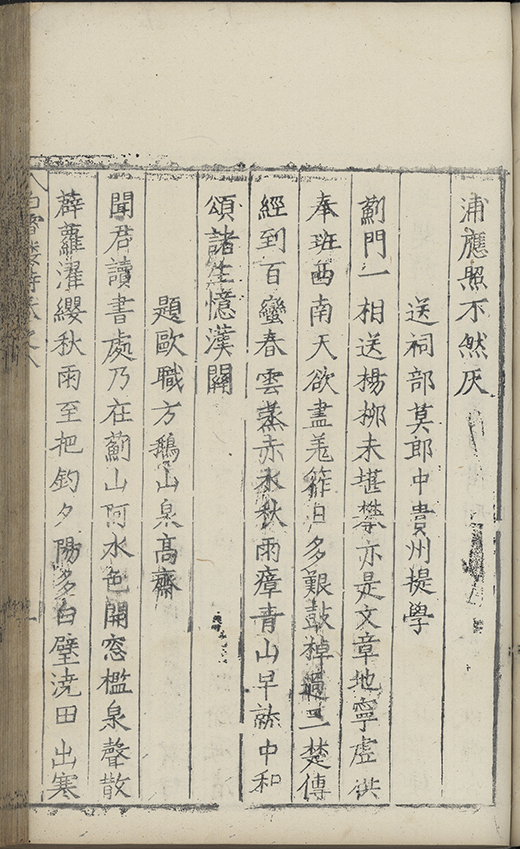 浦應照不然灰
送祠部莫郎中貴州提學
薊門一相送楊柳未堪攀亦是文章地寧虛供
奉班西南天欲盡羌笮日多艱鼓棹過三楚傳
經到百蠻春雲蒸赤水秋雨瘴青山早訴中和
頌諸生憶漢關
題歐職方鵝山泉高齋
聞君讀書處乃在薊山阿水色開窓檻泉聲散
薜蘿濯纓秋雨至把釣夕陽多白璧澆田出寒